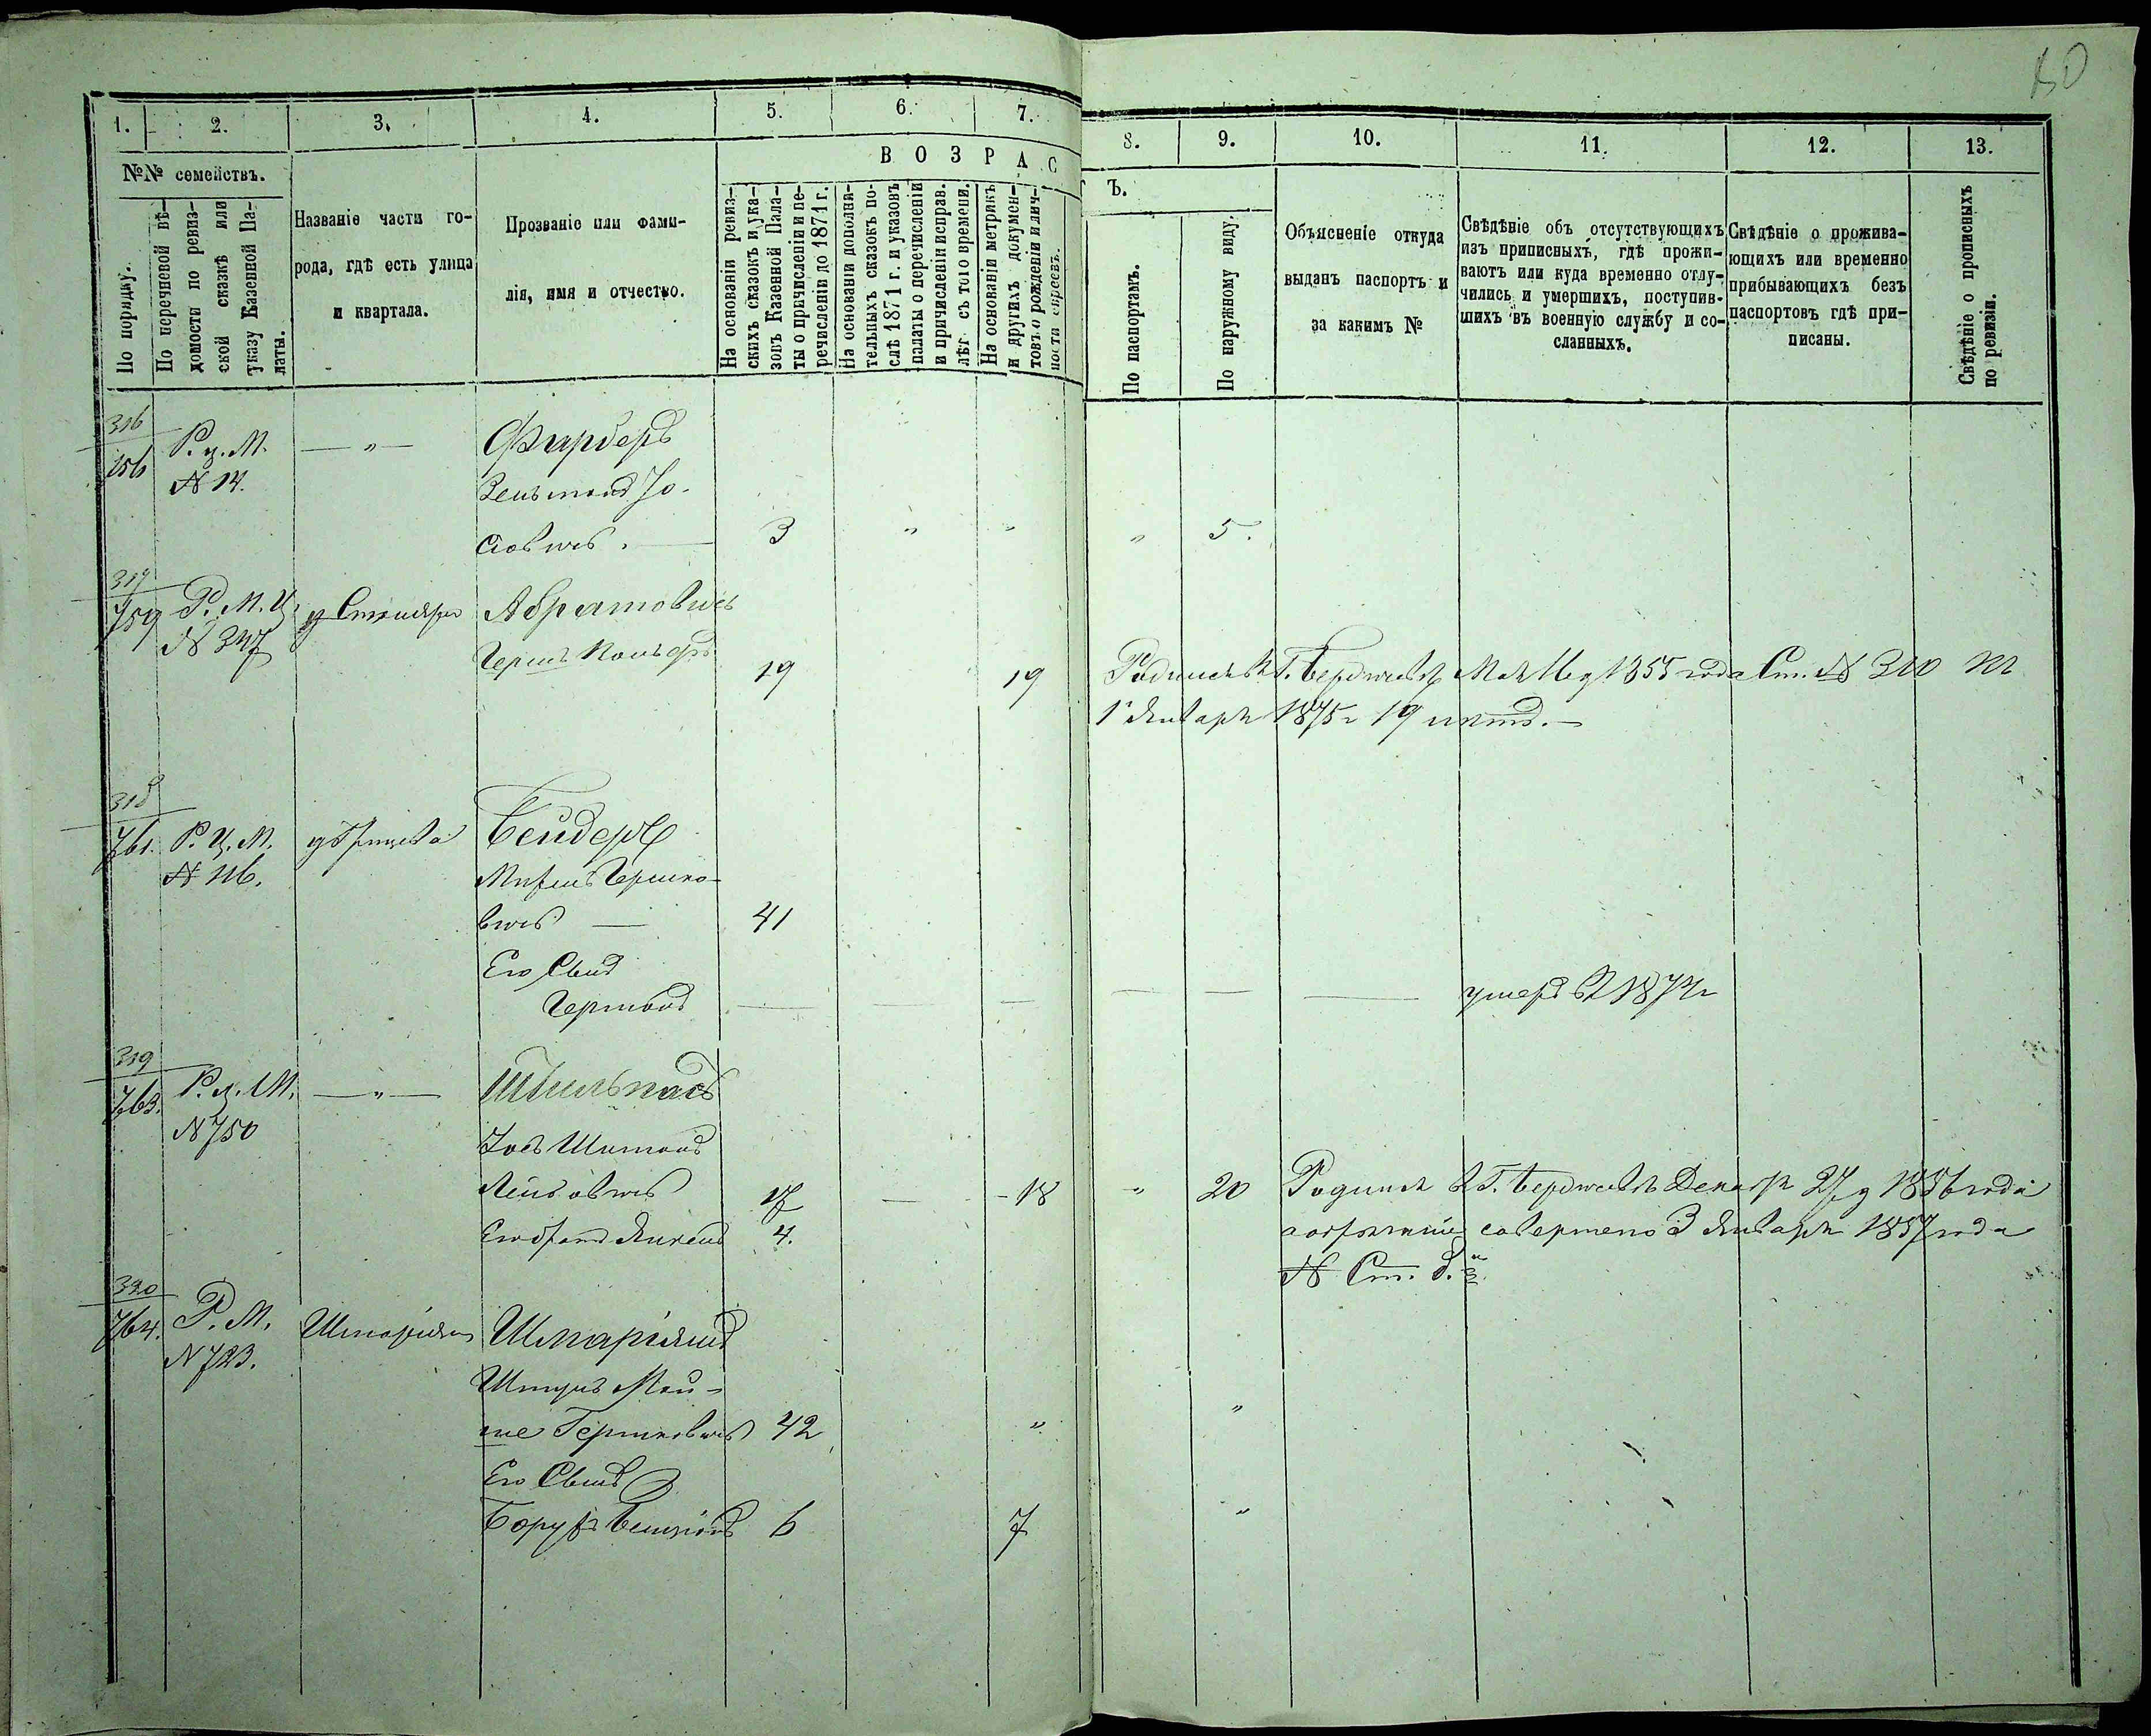 80
1. 2. 3. 4. 5. 6. 7. 8. 9. 10. 11. 12. 13.
№№ семействъ.
По порядку.
По перечневой вѣ-
домости по ревиз-
ской сказкѣ или
указу Казенной Па-
латы.
Названіе части го-
рода, гдѣ есть улица
и квартала.
Прозваніе или фами-
лія, имя и отчество.
ВОЗРАСТЪ.
На основаніи ревиз-
скихъ сказокъ и ука-
зовъ Казенной Пала-
ты о причисленіи и пе-
речисленіи до 1871 г.
На основаніи дополни-
тельныхъ сказокъ по-
слѣ 1871 г. и указовъ
палаты о перечисленіи
и причисленіи исправ.
лѣт. съ того времени.
На основаніи метрикъ
и другихъ докумен-
товъ о рожденіи и лич-
ности евреевъ.
По паспортамъ.
По наружному виду.
Объясненіе откуда
выданъ паспортъ и
за какимъ №
Свѣдѣніе объ отсутствующихъ
изъ приписныхъ, гдѣ прожи-
ваютъ или куда временно отлу-
чились и умершихъ, поступив-
шихъ въ военную службу и со-
сланныхъ.
Свѣдѣніе о прожива-
ющихъ или временно
прибывающихъ безъ
паспортовъ гдѣ при-
писаны.
Свѣдѣніе о прописныхъ
по ревизіи.
316
756 Р. ц. М. — „ — Фарберъ
№ 14. Іо-
сіовичъ. — 3 „ „ „ 5.
317
759 Р. М. Ц. Абрамовичъ
№ 347 Гершъ
19 19 Родился въ Г. Бердичевѣ Мая 1855 года Ст. № 310 на
1е Января 1875 г 19 лѣтъ. —
318
761. Р. Ц. М. Бейдеръ
№ 116. Гершко-
вичъ — 41
Его Сынъ
Гершонъ — — — — — умеръ въ 1874 г
319
763. Р. ц. М. — „ — Шпильпадъ
№ 750
Іось Шимонъ
Лейбовичъ 17 — - 18 „ 20 Родился въ Г. Бердичевѣ Декабр 27 д 1856 года
Его братъ Янкель 4. обрѣзаніе совершено 3 Января 1857 года
№ Ст. 8. й
320
764. Р. М. Шпаріянъ
№ 723.
Шмуль Мой-
ше Гершковичъ 42 „ „
Его Сынъ
Борухъ Бенціонъ 6 7 „